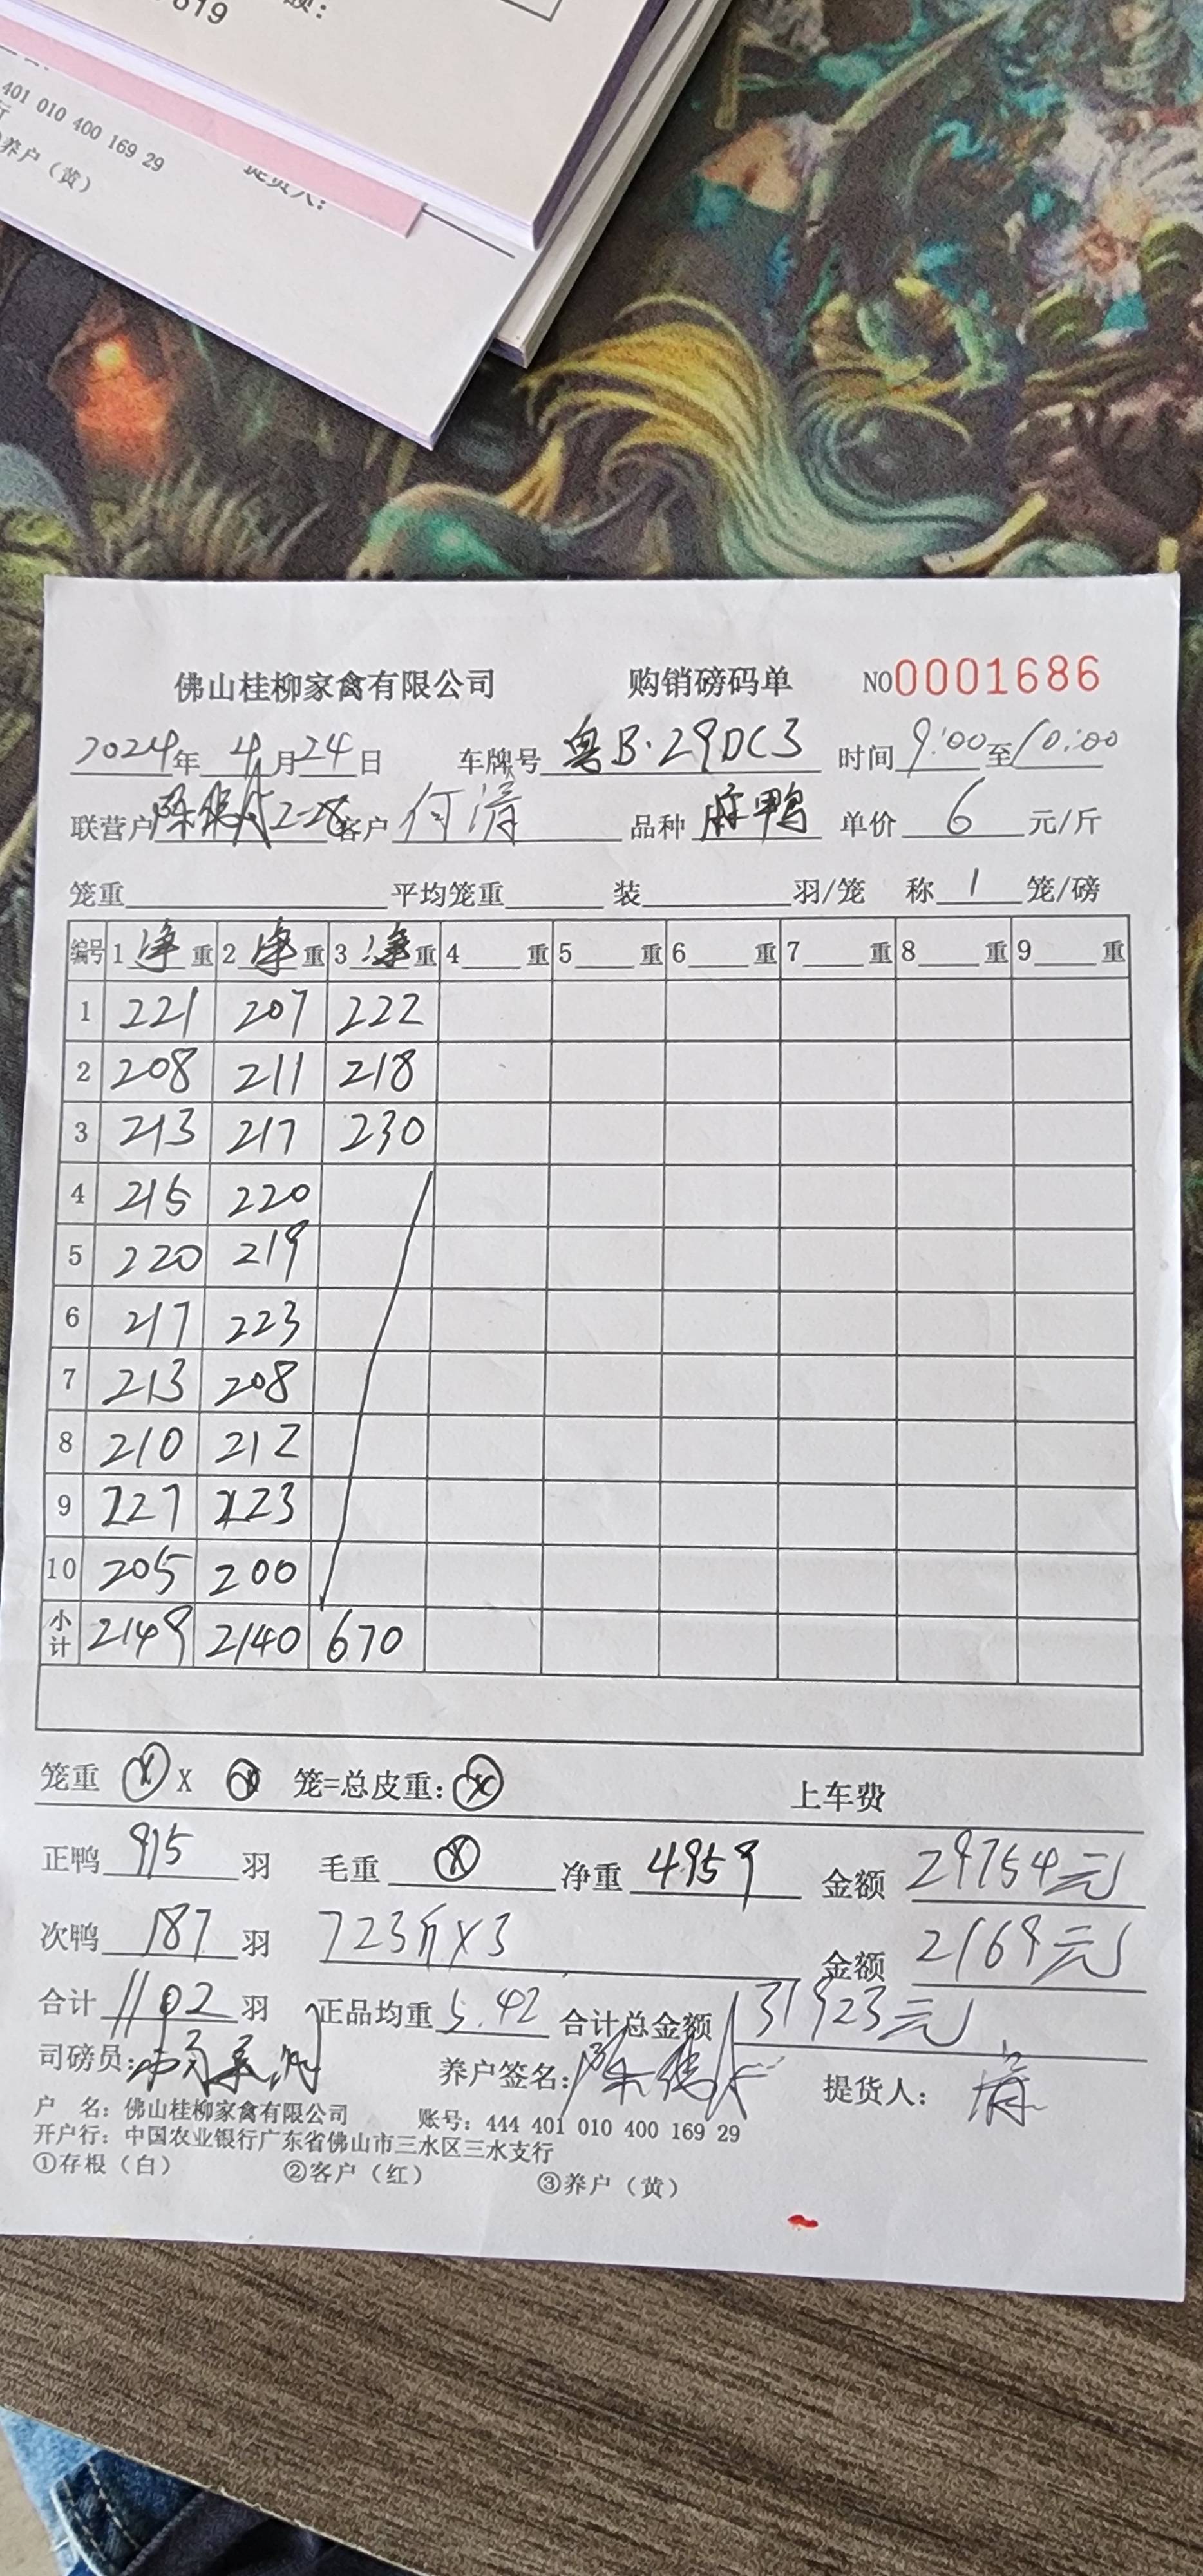 619
401 010 400 169 29
养户（黄）
提货人：
佛山桂柳家禽有限公司 购销磅码单 NO0001686
2024年4月24日 车牌号 粤B·29DC3 时间 9:00至10:00
联营户 2-28 客户 何清 品种 麻鸭 单价 6 元/斤
笼重 平均笼重 装 羽/笼 称 1 笼/磅
编号 1 净 重 2 净 重 3 净 重 4 重 5 重 6 重 7 重 8 重 9 重
1 221 207 222
2 208 211 218
3 213 217 230
4 215 220
5 220 219
6 217 223
7 213 208
8 210 212
9 227 223
10 205 200
小计 2149 2140 670
笼重 ⓧ X ⓧ 笼=总皮重：ⓧ 上车费
正鸭 915 羽 毛重 ⓧ 净重 4959 金额 29754元
次鸭 187 羽 723斤X3 金额 2169元
合计 1102 羽 正品均重 5.42 合计总金额 31923元
司磅员： 养户签名： 提货人： 清
户 名：佛山桂柳家禽有限公司 账号：444 401 010 400 169 29
开户行：中国农业银行广东省佛山市三水区三水支行
①存根（白） ②客户（红） ③养户（黄）